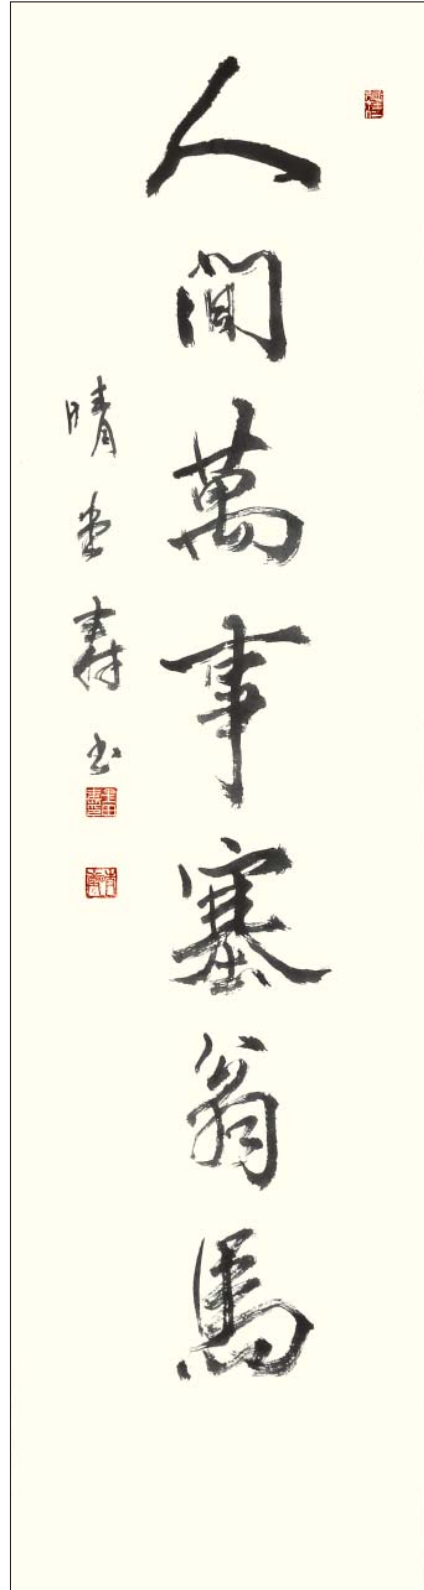 人間萬事塞翁馬
晴堂壽書